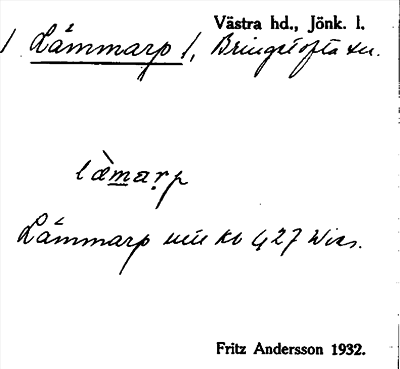 Västra hd., Jönk. l.
Lämmarp 1, Bringetofta sn.
làmarp
Lämmarp Wies.
Fritz Andersson 1932.